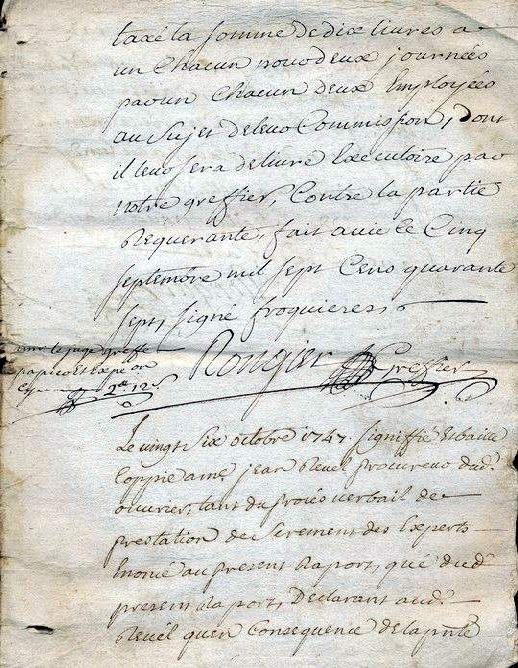 taxé la somme de dix livres a
un Chacun pour deux journées
par un Chacun deux Employées
au Sujet de leur Commission, dont
il leur sera delivré Executoire par
notre greffier, Contre la partie
Requerante, fait a vic le Cinq
septembre mil sept Cens quarante
sept, signé froquieres
Rougier Greffier
papier et Expe on
2# 12s
Le vingt Six octobre 1747. Signiffié et baillé
Coppie a me jean Revel procureur dud.
ouvrier, tant du proces verbail de
prestation de Serement des Experts
Enoncé au present Raport, que dud
present Raport, Declarant aud.
Revel qu'en Consequence de la pnte